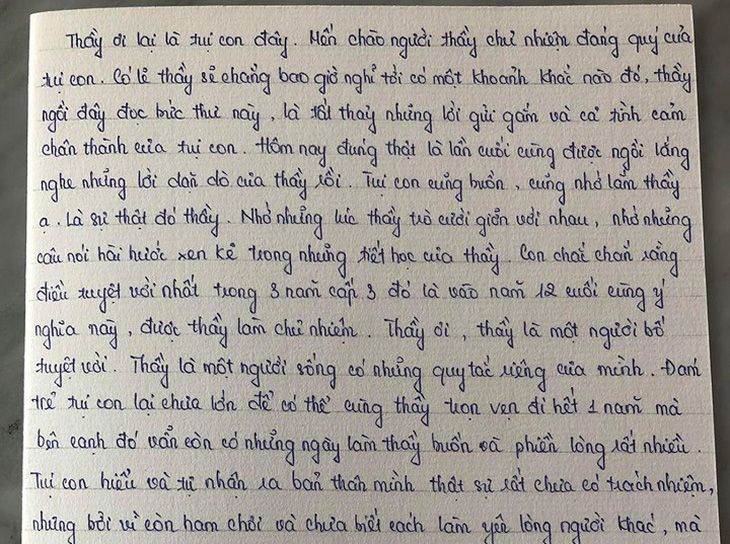 Thầy ơi lại là tụi con đây. Mến chào người thầy chủ nhiệm đáng quý của
tụi con. Có lẽ thầy sẽ chẳng bao giờ nghĩ tới có một khoảnh khắc nào đó, thầy
ngồi đây đọc bức thư này, là tất thảy những lời gửi gắm và cả tình cảm
chân thành của tụi con. Hôm nay đúng thật là lần cuối cùng được ngồi lắng
nghe những lời dặn dò của thầy rồi. Tụi con cũng buồn, cũng nhớ lắm thầy
ạ. Là sự thật đó thầy. Nhớ những lúc thầy trò cười giỡn với nhau, nhớ những
câu nói hài hước xen kẽ trong những tiết học của thầy. Con chắc chắn rằng
điều tuyệt vời nhất trong 3 năm cấp 3 đó là vào năm 12 cuối cùng ý
nghĩa này, được thầy làm chủ nhiệm. Thầy ơi, thầy là một người bố
tuyệt vời. Thầy là một người sống có những quy tắc riêng của mình. Đám
trẻ tụi con lại chưa lớn để có thể cùng thầy trọn vẹn đi hết 1 năm mà
bên cạnh đó vẫn còn có những ngày làm thầy buồn và phiền lòng rất nhiều.
Tụi con hiểu và tự nhận ra bản thân mình thật sự rất chưa có trách nhiệm,
nhưng bởi vì còn ham chơi và chưa biết cách làm yên lòng người khác, mà